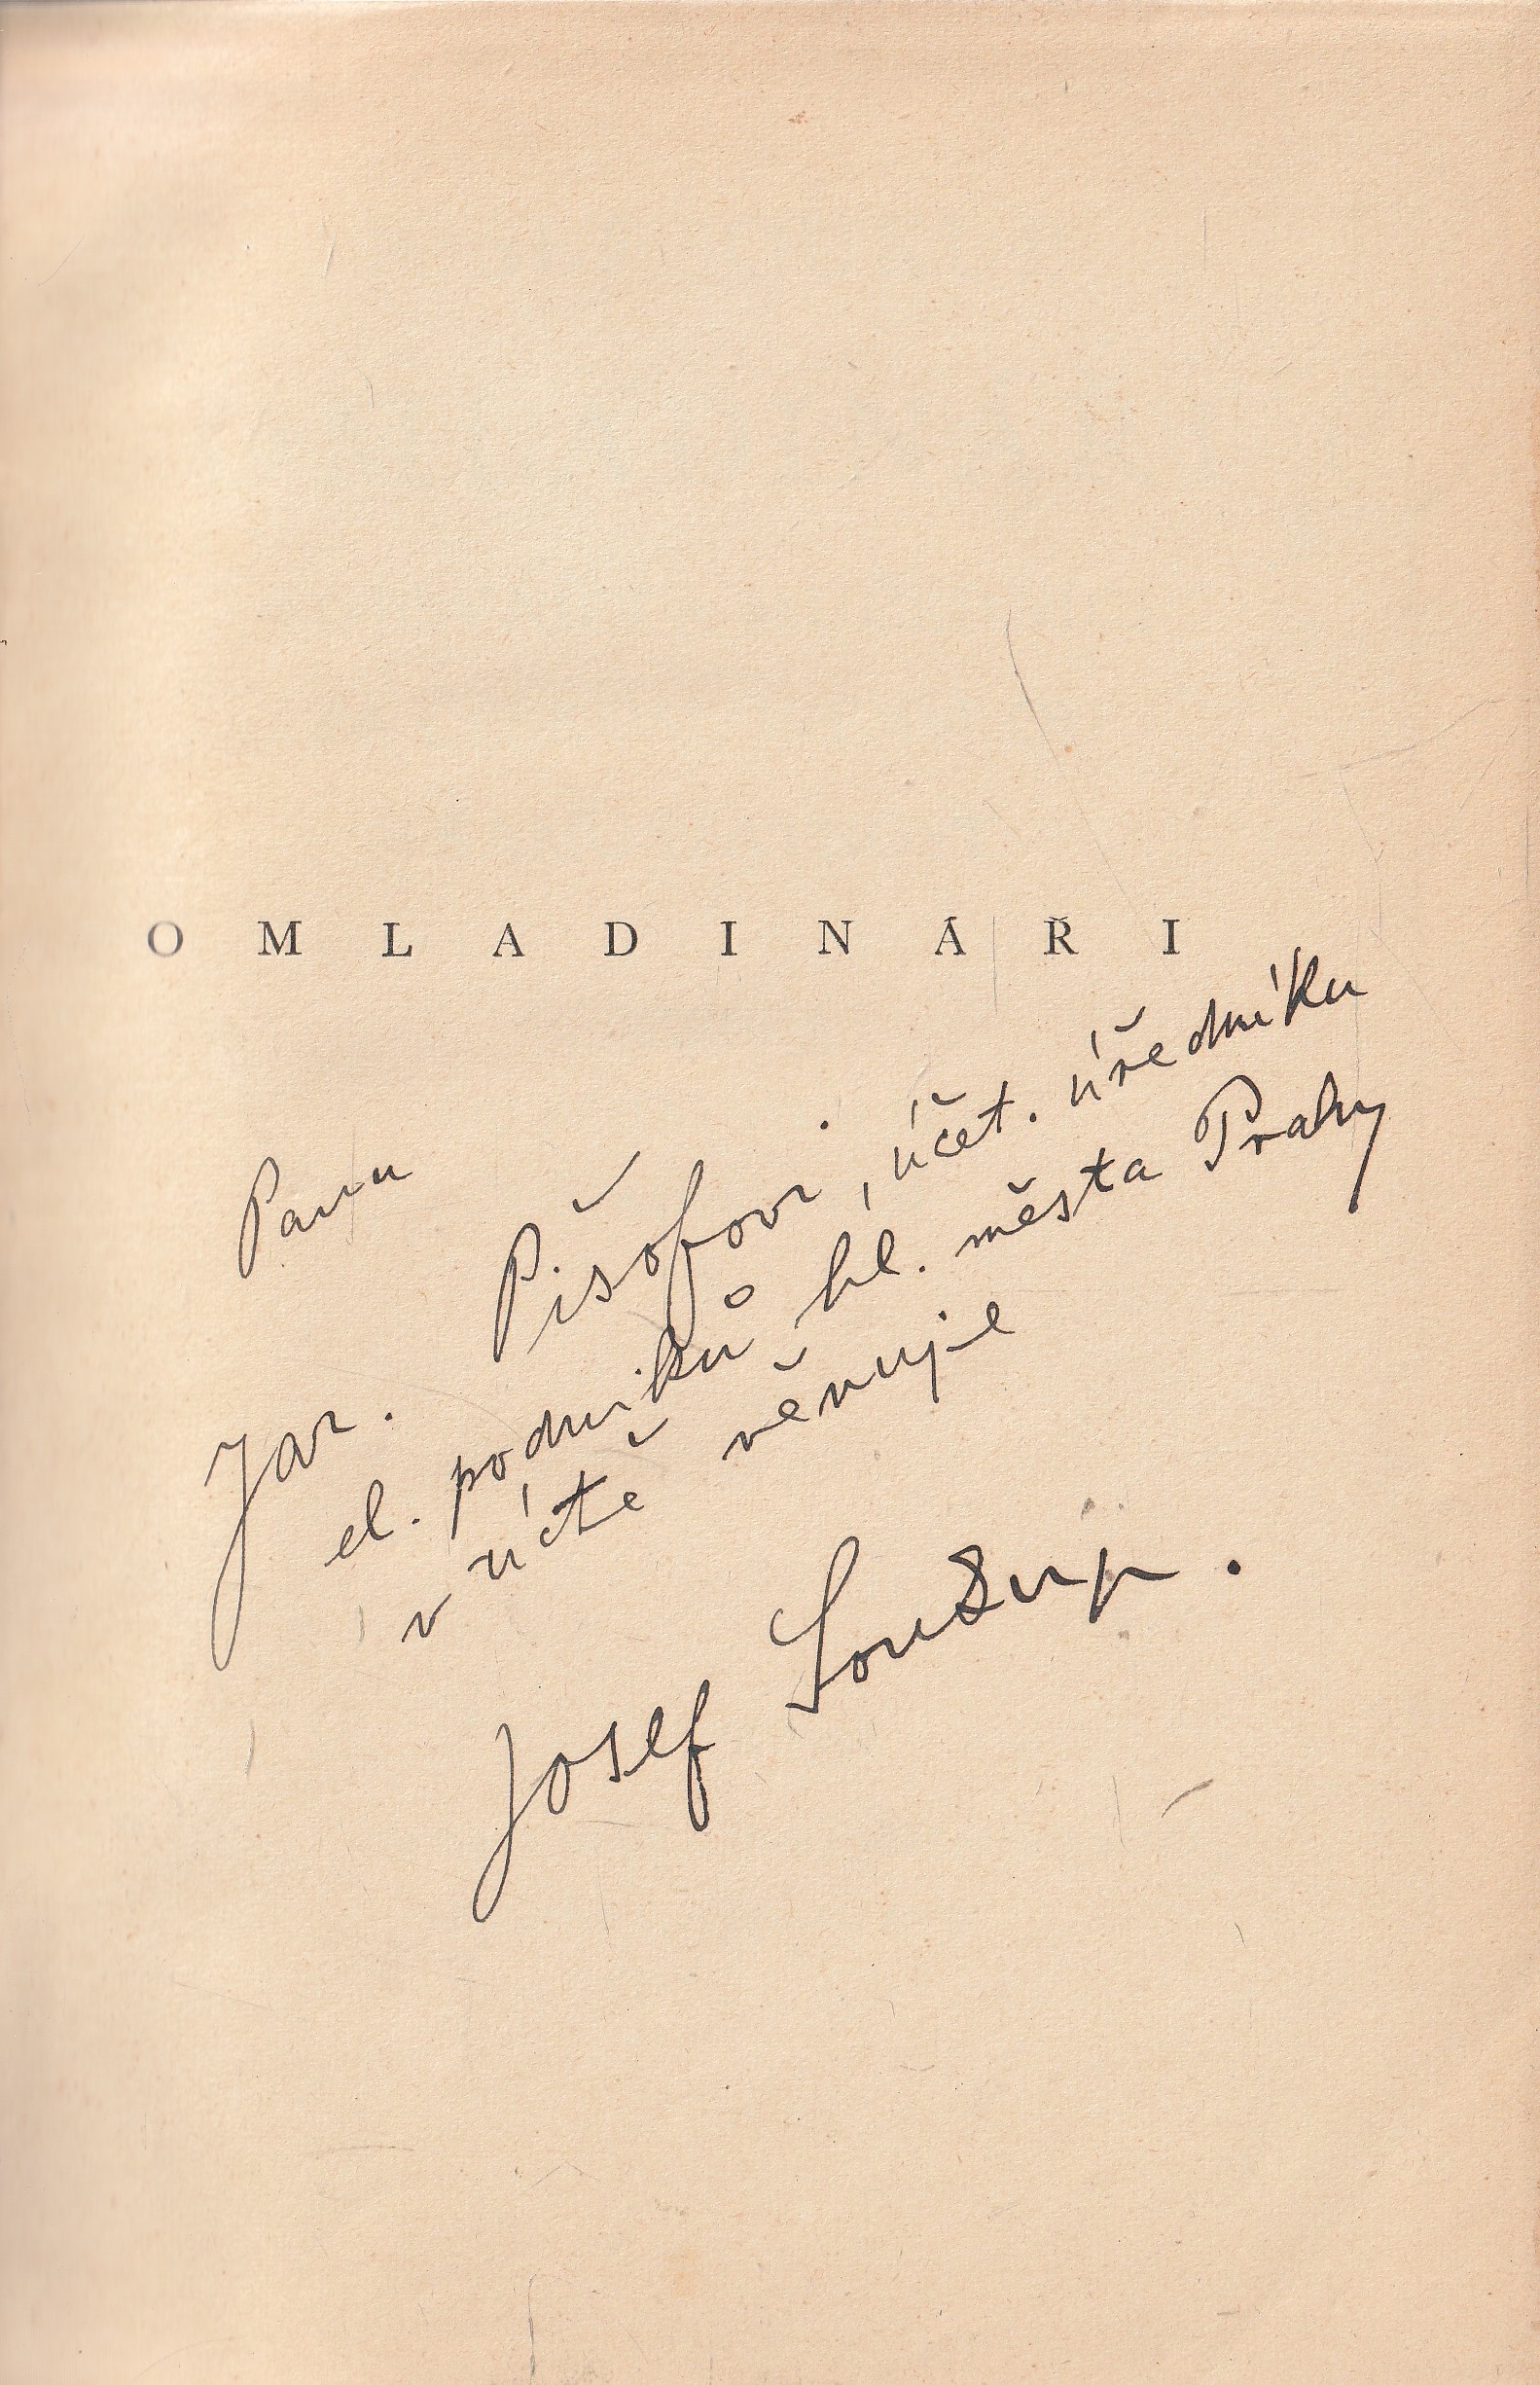 OMLADINÁŘI
Panu
Jar. Pišofovi, účet. úředníku
el. podniků hl. města Prahy
v úctě věnuje
Josef Soukup.